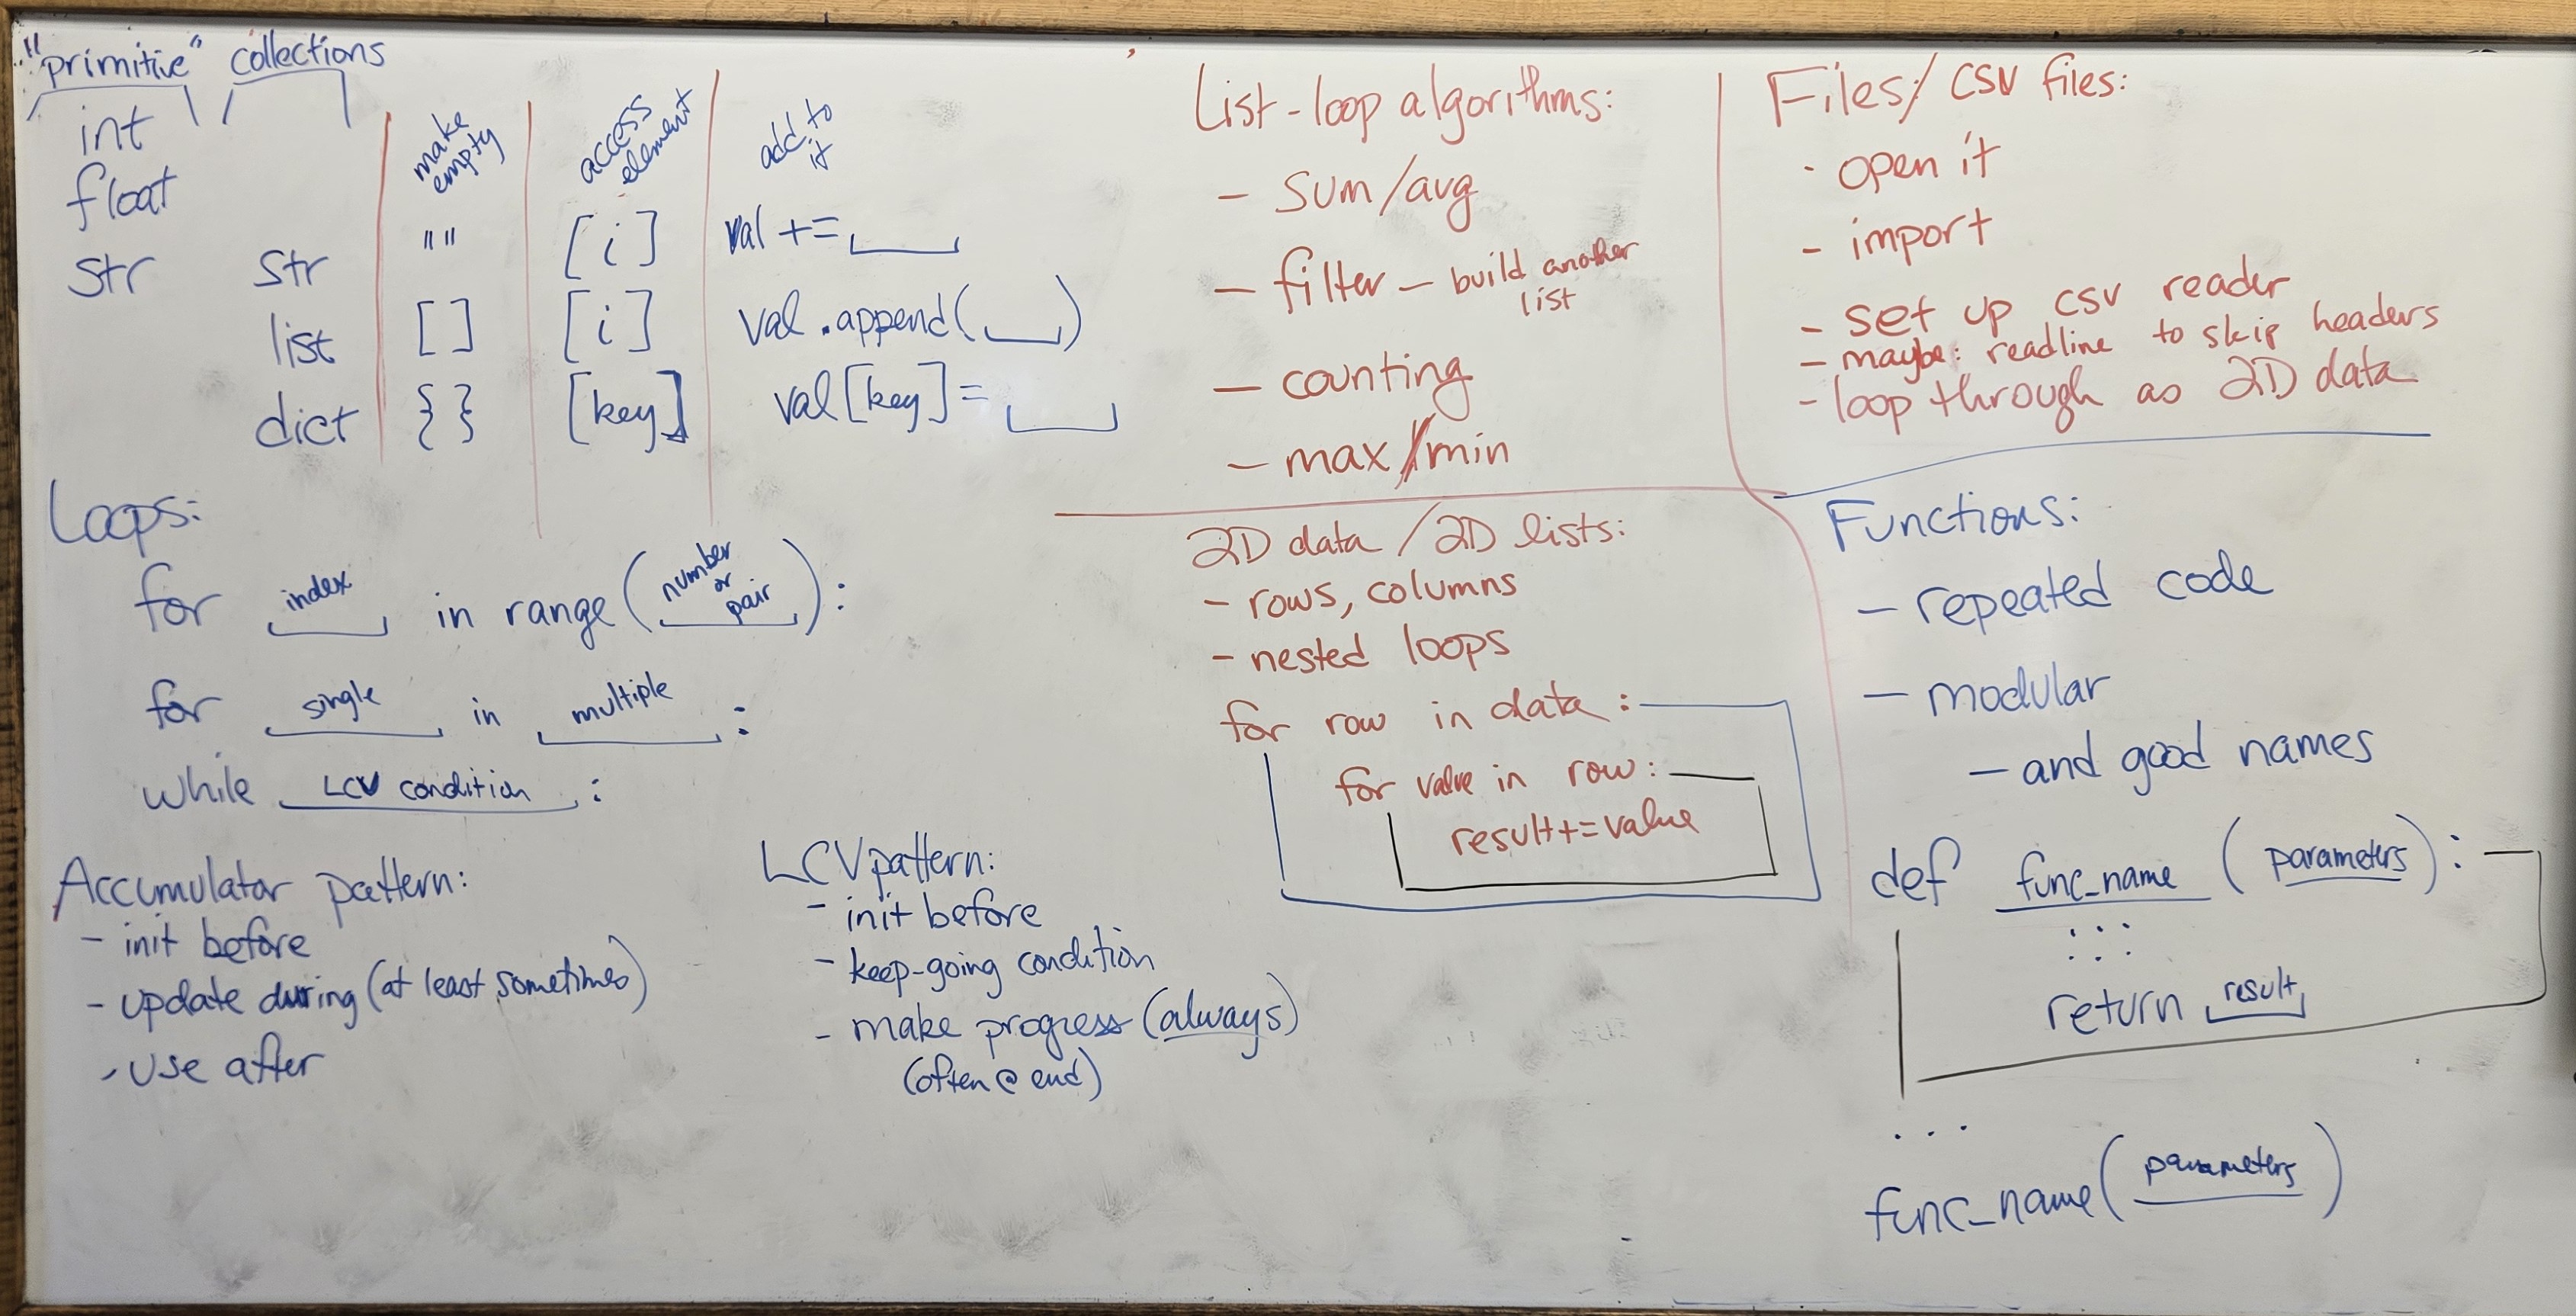 "primitive" collections
int
float
str str
list
dict
make empty
access element
add to it
"" [i] val += __
[] [i] val.append(__)
{} [key] val[key] = __
Loops:
for index in range(number or pair):
for single in multiple:
while LCV condition:
Accumulator pattern:
- init before
- update during (at least sometimes)
- use after
LCV pattern:
- init before
- keep-going condition
- make progress (always)
(often @ end)
List-loop algorithms:
- sum/avg
- filter - build another
list
- counting
- max/min
2D data / 2D lists:
- rows, columns
- nested loops
for row in data:
for value in row:
result+=value
Files/ CSV files:
- open it
- import
- set up csv reader
- maybe: readline to skip headers
- loop through as 2D data
Functions:
- repeated code
- modular
- and good names
def func_name (parameters):
...
...
return result
...
func_name(parameters)